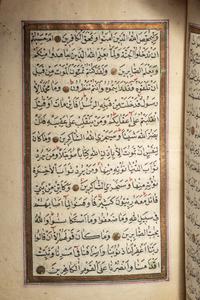 وَلِيُمَحِّصَ اللهُ الَّذِينَ آمَنُوا وَيَمْحَقَ الْكَافِرِينَ اَمْ حَسِبْتُمْ
اَنْ تَدْخُلُوا الْجَنَّةَ وَلَمَّا يَعْلَمِ اللهُ الَّذِينَ جَاهَدُوا مِنْكُمْ
وَيَعْلَمَ الصَّابِرِينَ وَلَقَدْ كُنْتُمْ تَمَنَّوْنَ الْمَوْتَ مِنْ قَبْلِ
اَنْ تَلْقَوْهُ فَقَدْ رَاَيْتُمُوهُ وَاَنْتُمْ تَنْظُرُونَ وَمَا مُحَمَّدٌ اِلَّا
رَسُولٌ قَدْ خَلَتْ مِنْ قَبْلِهِ الرُّسُلُ اَفَاِنْ مَاتَ اَوْ قُتِلَ
انْقَلَبْتُمْ عَلَى اَعْقَابِكُمْ وَمَنْ يَنْقَلِبْ عَلَى عَقِبَيْهِ فَلَنْ
يَضُرَّ اللهَ شَيْئًا وَسَيَجْزِي اللهُ الشَّاكِرِينَ وَمَا كَانَ
لِنَفْسٍ اَنْ تَمُوتَ اِلَّا بِاِذْنِ اللهِ كِتَابًا مُؤَجَّلًا وَمَنْ يُرِدْ
ثَوَابَ الدُّنْيَا نُؤْتِهِ مِنْهَا وَمَنْ يُرِدْ ثَوَابَ الْآخِرَةِ
نُؤْتِهِ مِنْهَا وَسَنَجْزِي الشَّاكِرِينَ وَكَاَيِّنْ مِنْ نَبِيٍّ
قَاتَلَ مَعَهُ رِبِّيُّونَ كَثِيرٌ فَمَا وَهَنُوا لِمَا اَصَابَهُمْ
فِي سَبِيلِ اللهِ وَمَا ضَعُفُوا وَمَا اسْتَكَانُوا وَاللهُ
يُحِبُّ الصَّابِرِينَ وَمَا كَانَ قَوْلَهُمْ اِلَّا اَنْ قَالُوا
رَبَّنَا اغْفِرْ لَنَا ذُنُوبَنَا وَاِسْرَافَنَا فِي اَمْرِنَا وَثَبِّتْ
اَقْدَامَنَا وَانْصُرْنَا عَلَى الْقَوْمِ الْكَافِرِينَ